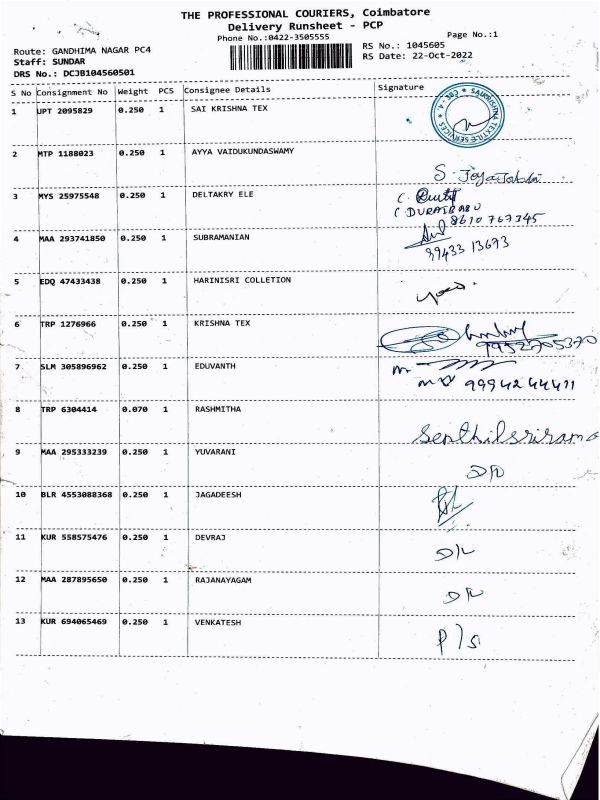 THE PROFESSIONAL COURIERS, Coimbatore
Delivery Runsheet - PCP
Phone No.:0422-3505555
Page No.:1
Route: GANDHIMA NAGAR PC4
RS No.: 1045605
Staff: SUNDAR
RS Date: 22-Oct-2022
DRS No.: DCJB104560501
S No Consignment No Weight PCS Consignee Details Signature
1 UPT 2095829 0.250 1 SAI KRISHNA TEX
2 MTP 1188023 0.250 1 AYYA VAIDUKUNDASWAMY
S.
3 MYS 25975548 0.250 1 DELTAKRY ELE
C.
C DURAIBABU
8610 767345
4 MAA 293741850 0.250 1 SUBRAMANIAN
99433 13673
5 EDQ 47433438 0.250 1 HARINISRI COLLETION
6 TRP 1276966 0.250 1 KRISHNA TEX
9952705370
7 SLM 305896962 0.250 1 EDUVANTH
9994244411
8 TRP 6304414 0.070 1 RASHMITHA
Senthilsrirama
9 MAA 295333239 0.250 1 YUVARANI
D/L
10 BLR 4553088368 0.250 1 JAGADEESH
11 KUR 558575476 0.250 1 DEVRAJ
D/L
12 MAA 287895650 0.250 1 RAJANAYAGAM
D/L
13 KUR 694065469 0.250 1 VENKATESH
P/S